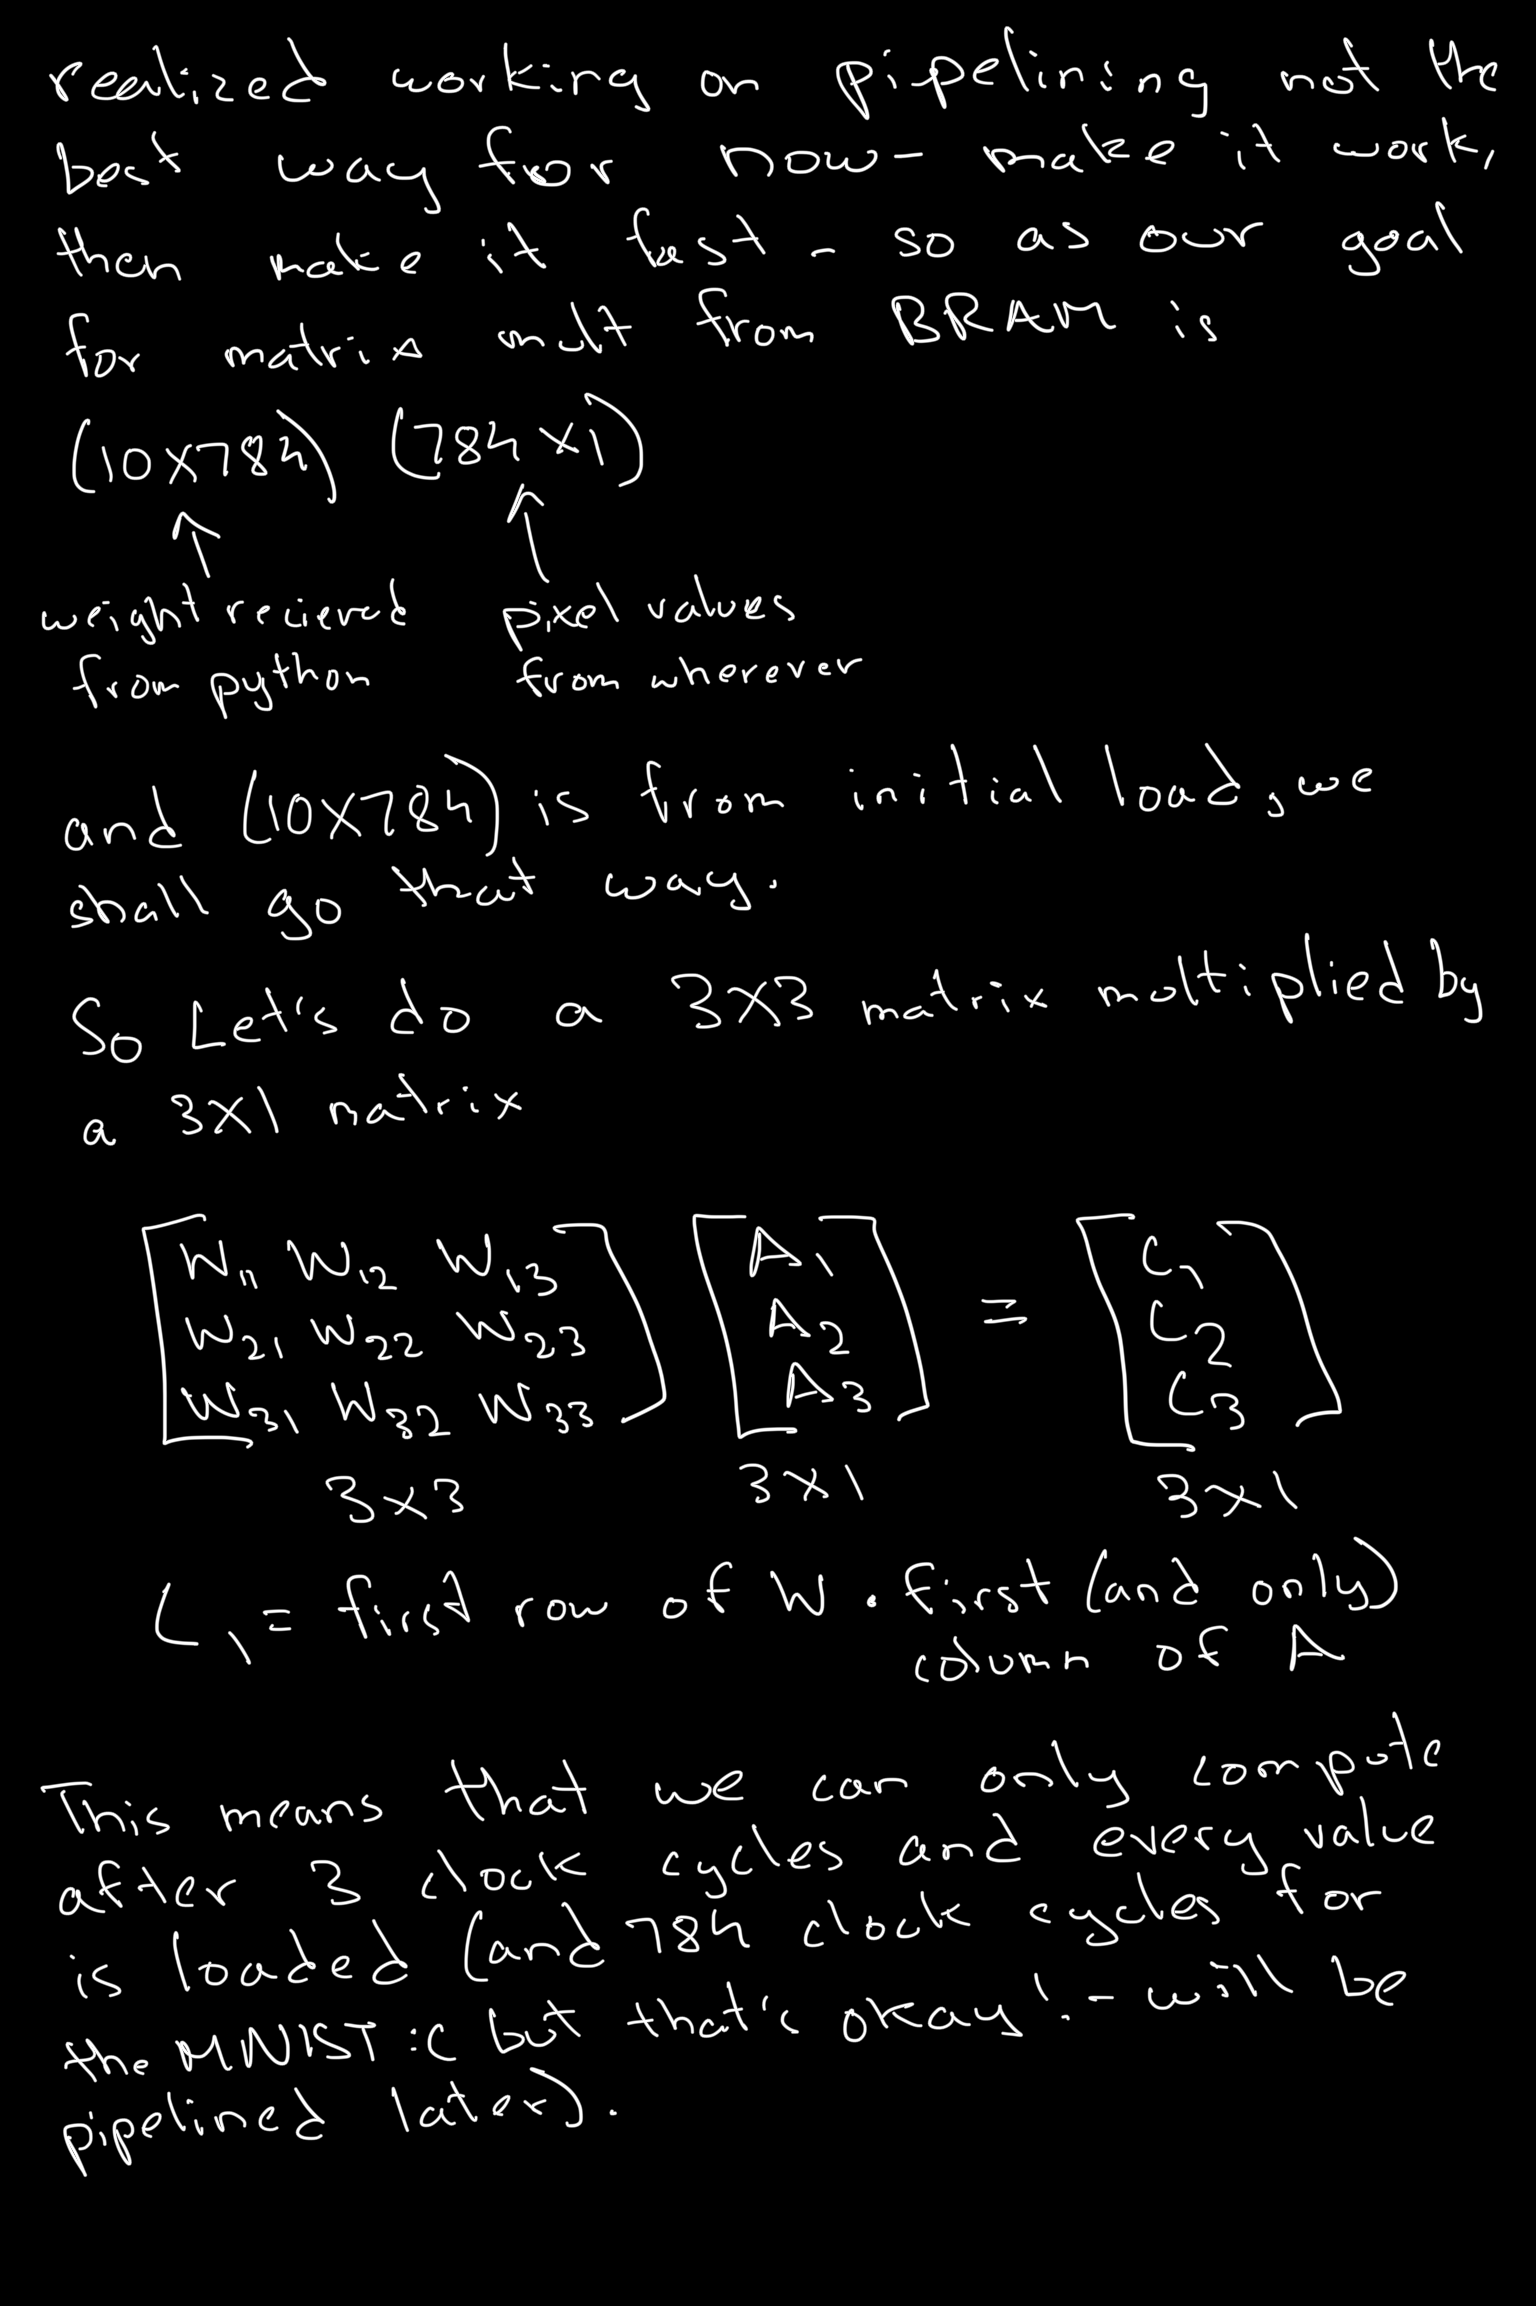 realized working on pipelining not the
best way for now - make it work,
then make it fast - so as our goal
for matrix mult from BRAM is
(10x784) (784x1)
weight recieved pixel values
from python from wherever
and (10x784) is from initial load, we
shall go that way.
So Let's do a 3x3 matrix moltiplied by
a 3x1 matrix
W11 W12 W13 A1 C1
W21 W22 W23 A2 = C2
W31 W32 W33 A3 C3
3x3 3x1 3x1
C1 = first row of W . first (and only)
column of A
This means that we can only compute
after 3 clock cycles and every value
is loaded (and 784 clock cycles for
the MNIST :C but that's okay! - will be
pipelined later).